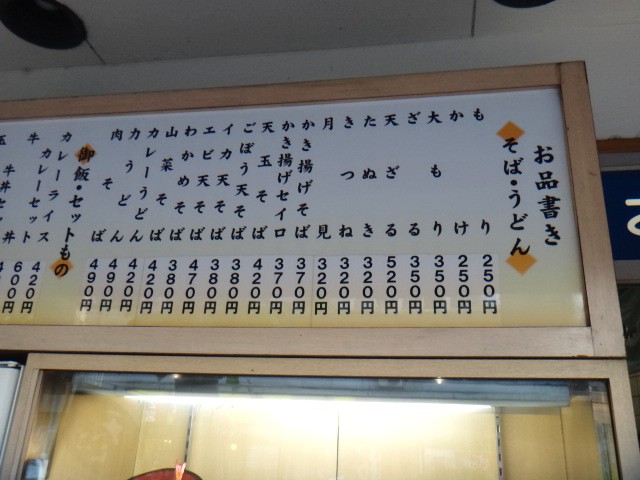 お品書き
そば・うどん
もり 250円
かけ 250円
大もり 350円
ざる 350円
天ざる 520円
たぬき 320円
きつね 320円
月見 320円
かき揚げそば 370円
かき揚げセイロ 370円
天玉そば 420円
ごぼう天そば 380円
イカ天そば 380円
エビ天そば 470円
わかめそば 380円
山菜そば 420円
カレーうどん 420円
力うどん 490円
肉そば 490円
御飯・セットもの
カレーライス 420円
カレーセット 600円
牛丼